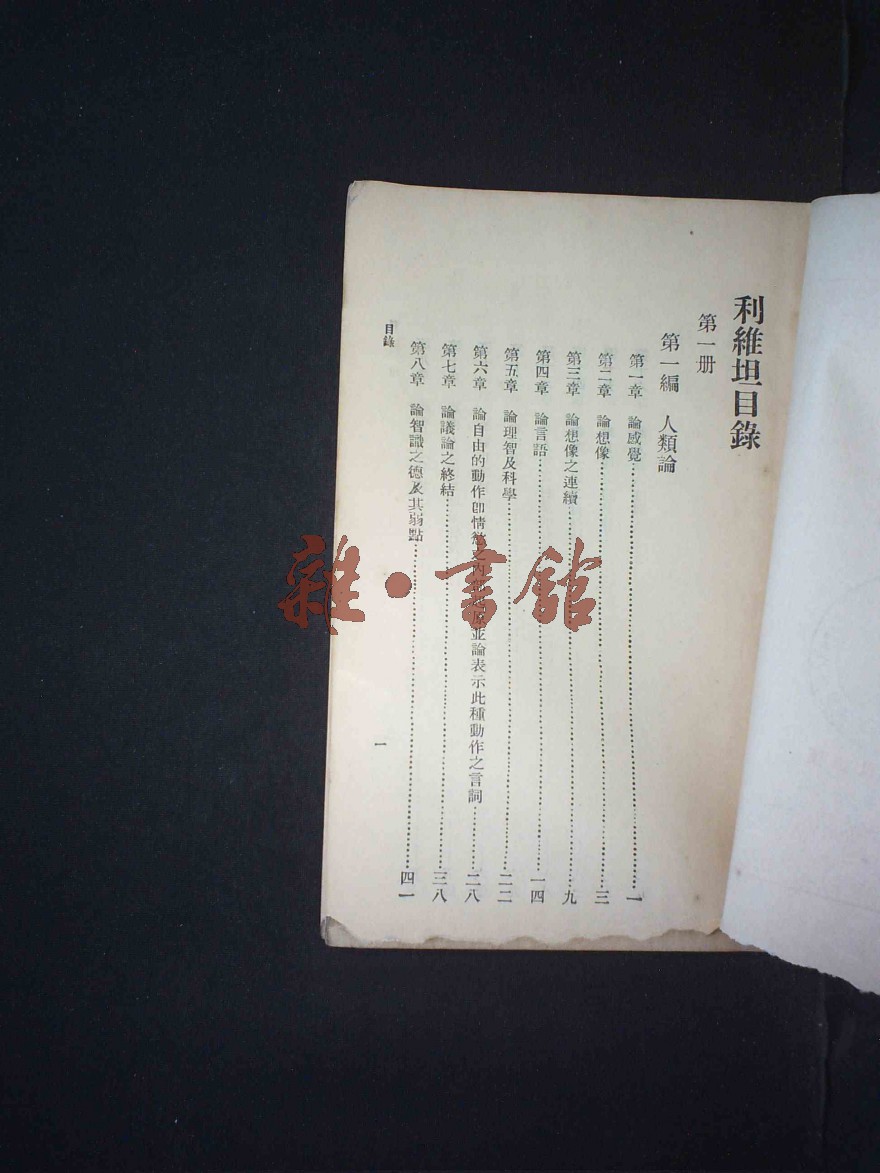 利維坦目錄
第一册
第一編 人類論
第一章 論感覺 一
第二章 論想像 三
第三章 論想像之連續 九
第四章 論言語 一四
第五章 論理智及科學 二二
第六章 論自由的動作卽情慾之內部起原並論表示此種動作之言詞 二八
第七章 論議論之終結 三八
第八章 論智識之德及其弱點 四一
目錄
一
雜·書館